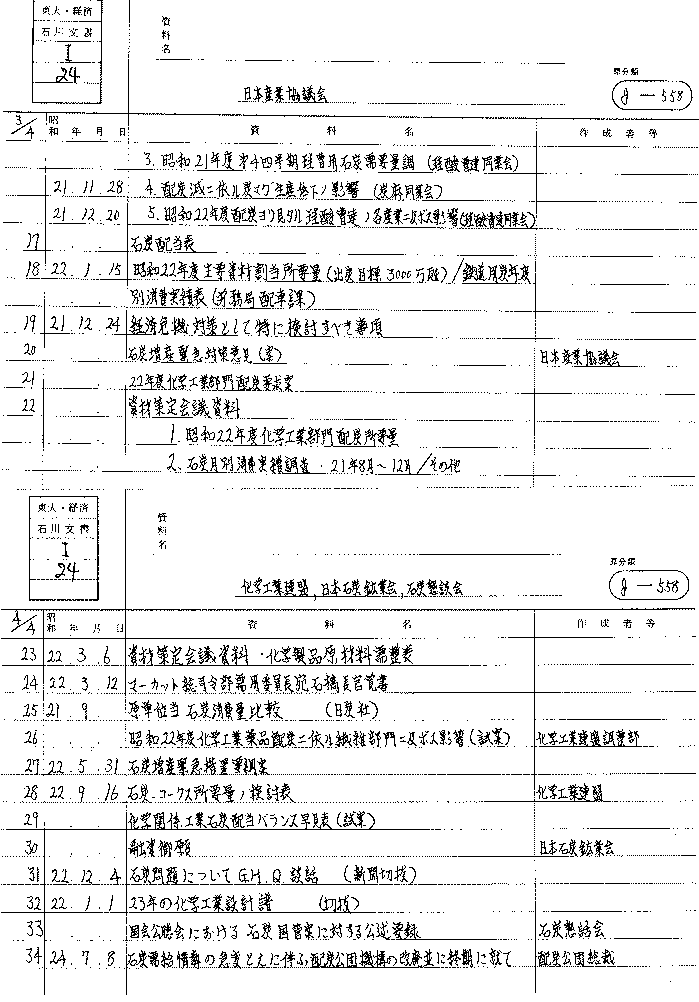 東大・経済
石川文書
I
24
資料名
日本産業協議会
原分類
g — 558
3/4 昭和 年 月 日 資料名 作成者等
3. 昭和21年度第4四半期経専用石炭需要量調 (硫酸曹達同業会)
21 11 28 4. 配炭減ニ依ル炭マグ生産低下ノ影響 (炭麻同業会)
21 12 20 5. 昭和22年度配炭ヨリ見タル硫酸曹達ノ各産業ニ及ボス影響(硫酸曹達同業会)
17 石炭配当表
18 22 1 15 昭和22年度主要資材割当所要量 (出炭目標 3000万瓲) / 鉄道用炭年度
別消費実績表 (労務局配車課)
19 21 12 24 経済危機対策として特に検討すべき事項
20 石炭増産緊急対策意見 (案) 日本産業協議会
21 22年度化学工業部門配炭要求案
22 資材策定会議資料
1. 昭和22年度化学工業部門配炭所要量
2. 石炭月別消費実績調査・21年8月〜12月 / その他
東大・経済
石川文書
I
24
資料名
化学工業連盟, 日本石炭鉱業会, 石炭懇談会
原分類
g — 558
4/4 昭和 年 月 日 資料名 作成者等
23 22 3 6 資材策定会議資料・化学製品原材料需要表
24 22 3 12 マーカット総司令部常用委員長宛石橋長官覚書
25 21 9 原単位当石炭消費量比較 (日炭社)
26 昭和22年度化学工業薬品配炭ニ依ル繊維部門ニ及ボス影響 (試案) 化学工業連盟調整部
27 22 5 31 石炭増産緊急措置要綱案
28 22 9 16 石炭・コークス所要量ノ検討表 化学工業連盟
29 化学関係工業石炭配当バランス早見表 (試案)
30 融資御願 日本石炭鉱業会
31 22 12 4 石炭問題について G.H.Q 談話 (新聞切抜)
32 22 1 1 23年の化学工業設計譜 (切抜)
33 国会公聴会における石炭国管案に対する公述要録 石炭懇話会
34 24 7 8 石炭需給情勢の急変とえに伴ふ配炭公団機構の改廃並に終期に就て 配炭公団総裁